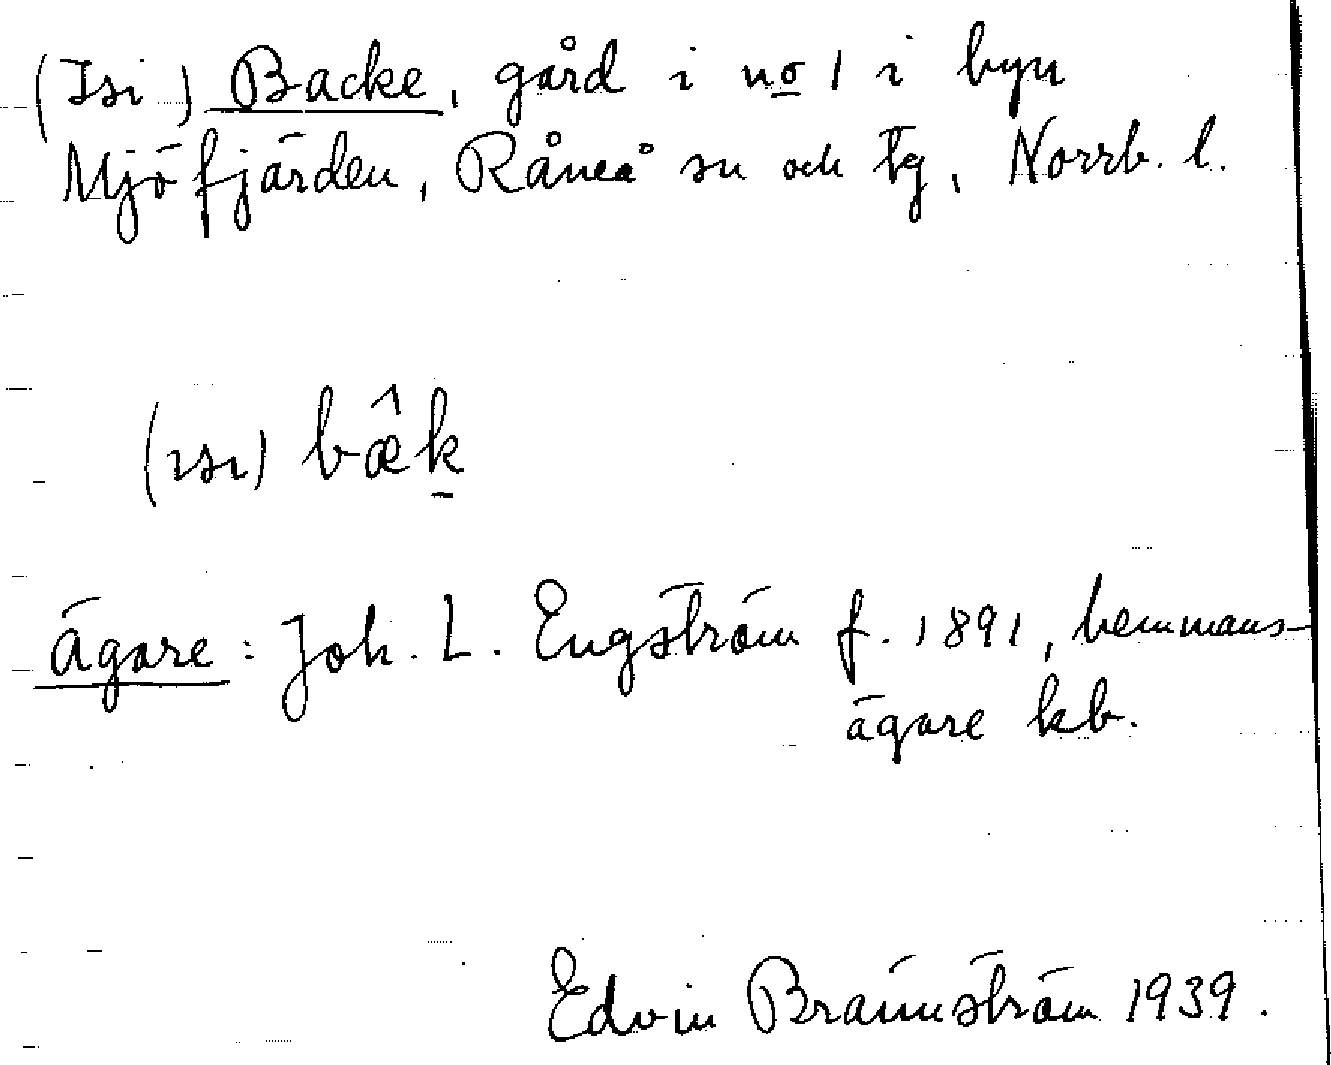 (Isi) Backe, gård i no 1 i byn
Mjöfjärden, Råneå sn och tg, Norrb. l.
(ısı) bæ̂k̠
Ägare: Joh. L. Engström f. 1891, hemmans-
ägare kb.
Edvin Brännström 1939.